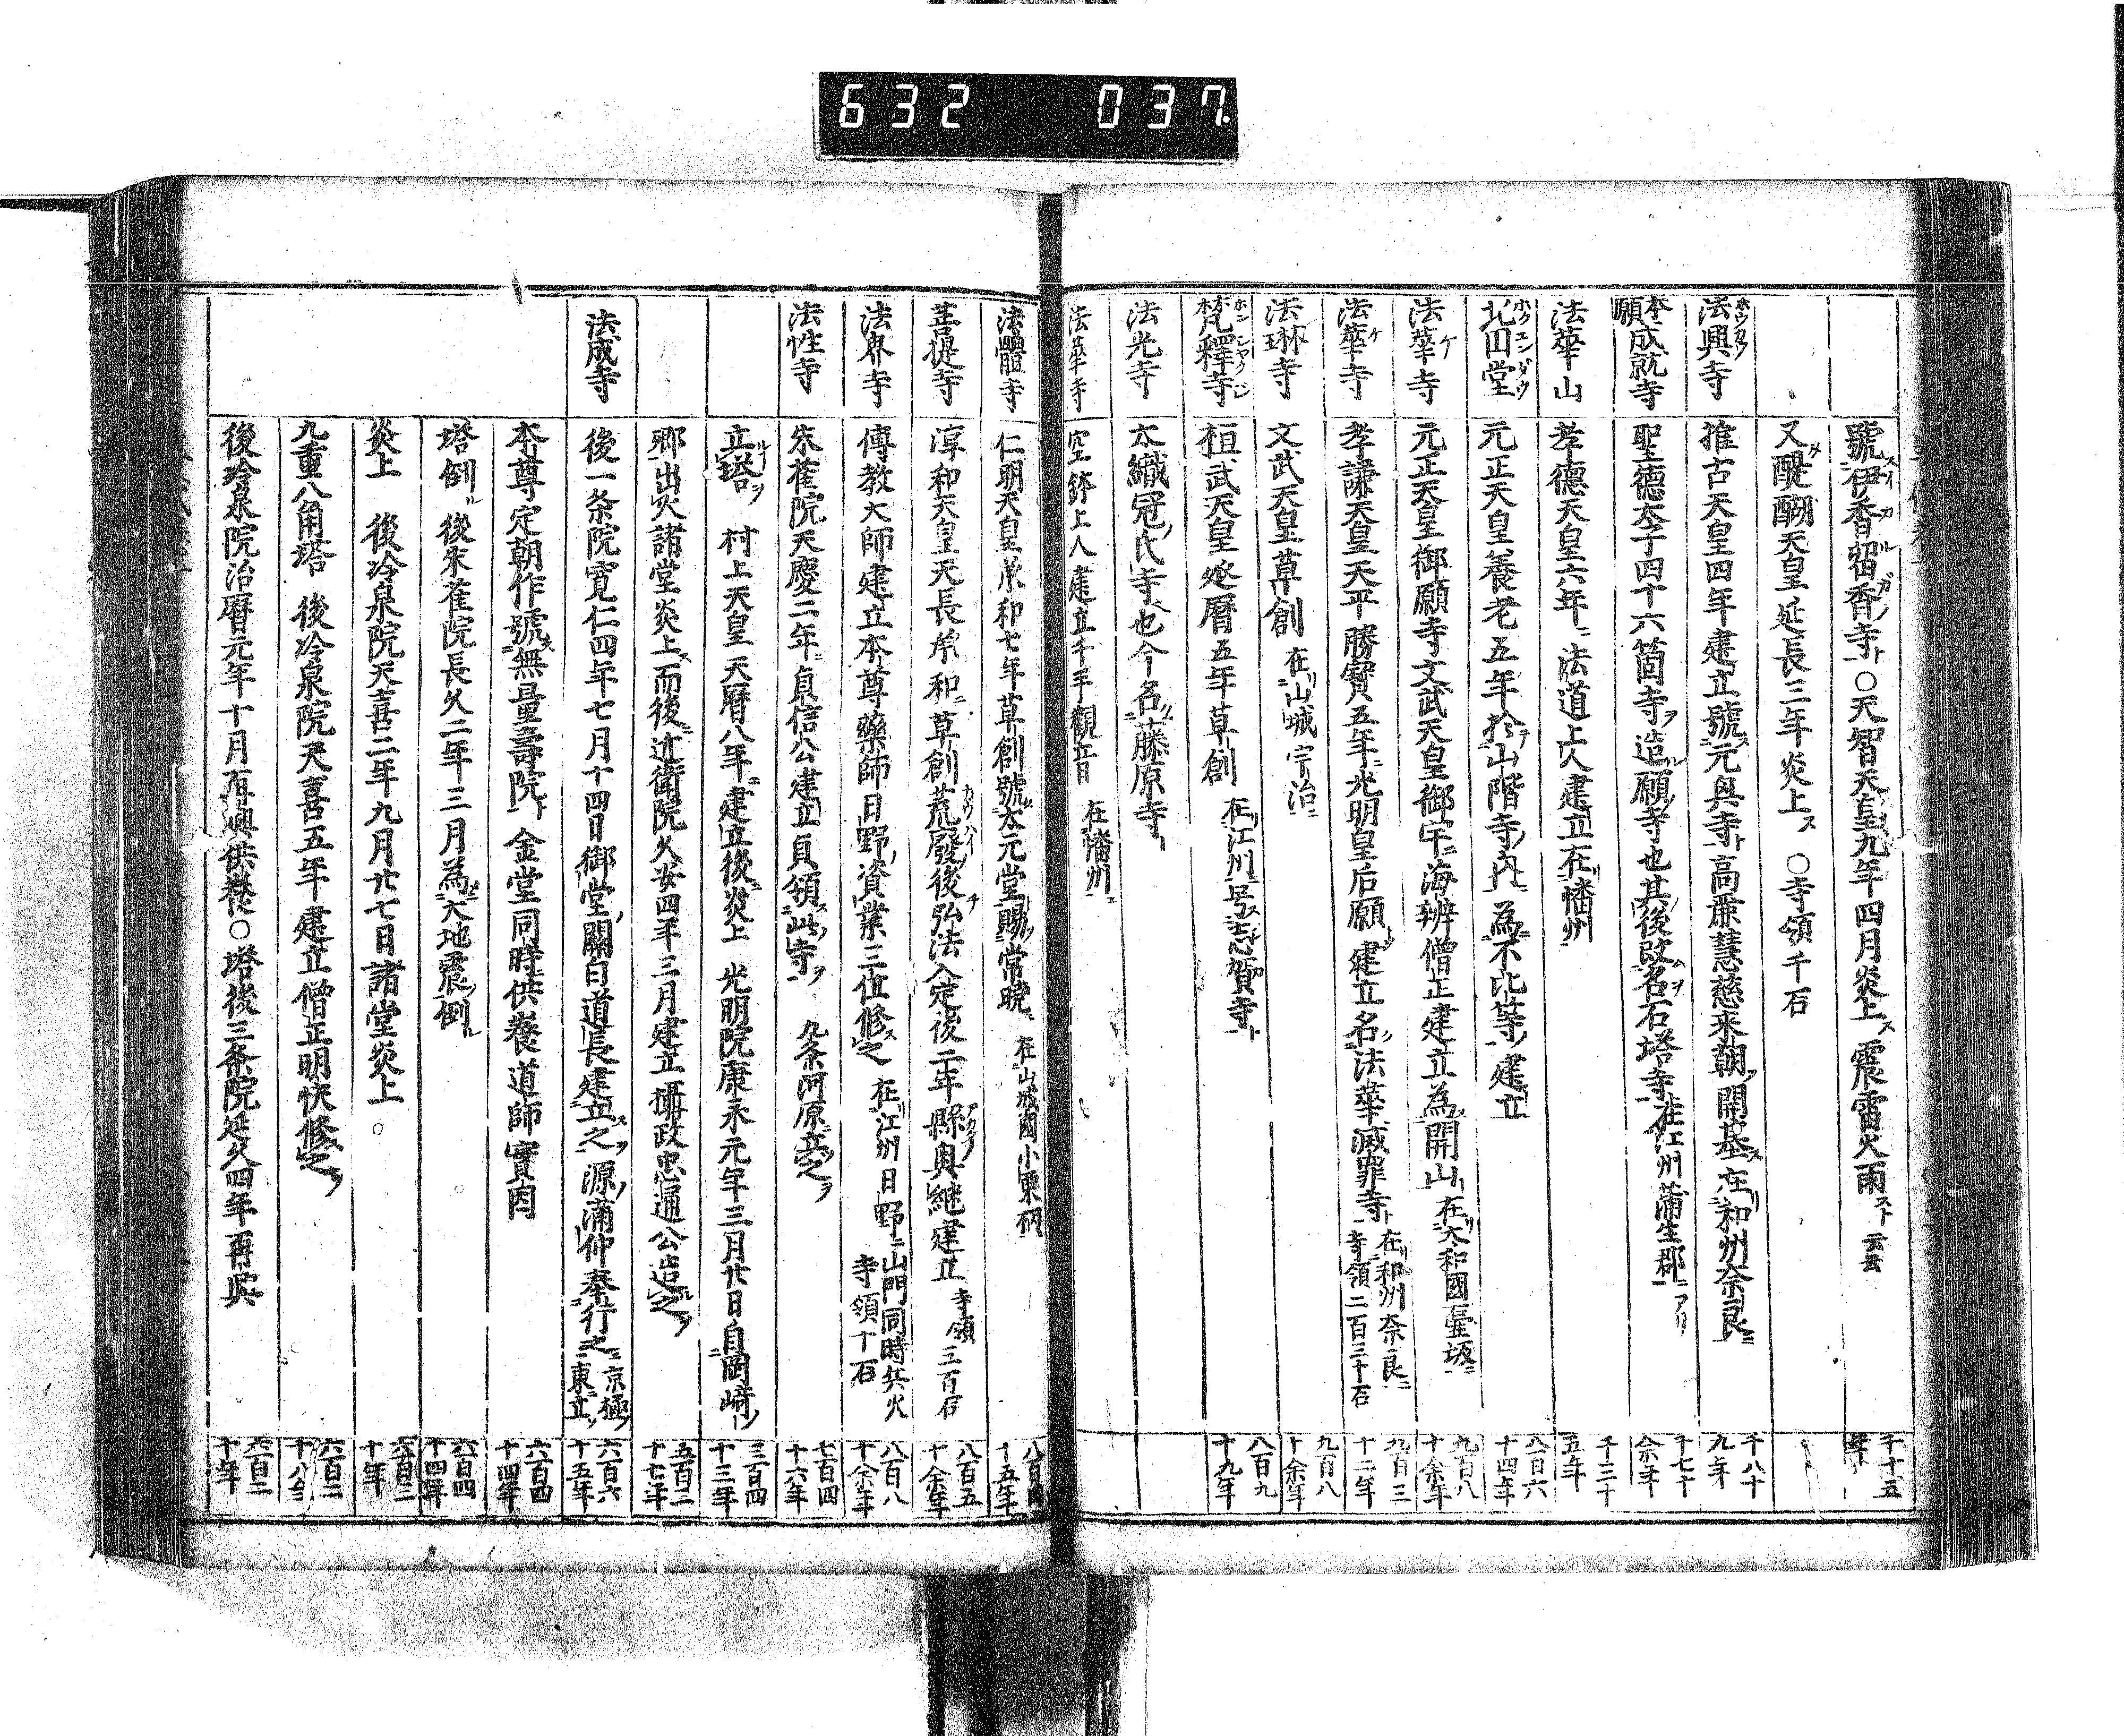 632 037.
號伊香留香寺ト〇天智天皇九年四月炎上ス震雷火雨スト云云 千十五年
又醍醐天皇延長三年炎上ス〇寺領千石
法興寺 推古天皇四年建立號元興寺ト高麗慧慈來朝開基ス在和州奈良ニ 千八十九年
本願成就寺 聖德太子四十六箇寺ヲ造ル願寺也其後改名ヲ石塔寺在江州蒲生郡ニアリ 千七十余年
法華山 孝德天皇六年ニ法道上人建立在幡州 千二十五年
北円堂 元正天皇養老五年於山階寺ノ内ニ為不比等ノ建立 八百六十四年
法華寺 元正天皇御願寺文武天皇御宇ニ海辨僧正建立為開山在大和國壷坂ニ 九百八十余年
法華寺 孝謙天皇天平勝寶五年ニ光明皇后願建立名法華滅罪寺ト在和州奈良ニ寺領二百三十石 九百三十二年
法琳寺 文武天皇草創在山城宇治ニ 九百八十余年
梵釋寺 桓武天皇延暦五年草創在江州ニ号志賀寺ト 八百九十九年
法光寺 太織冠ノ氏寺也今名藤原寺ト
法華寺 空鉢上人建立千手觀音在幡州ニ
法體寺 仁明天皇承和七年草創號太元堂賜常曉ニ在山城國小栗栖 八百四十五年
菩提寺 淳和天皇天長承和ニ草創荒廢後弘法入定後二年縣奥継建立寺領三百石 八百五十余年
法界寺 傳教大師建立本尊藥師日野ノ資業三位修ス之在江州日野ニ山門同時共火寺領十石 八百八十余年
法性寺 朱雀院天慶二年ニ貞信公建立貞領ス此寺ヲ九条河原ニ立之ヲ 七百四十六年
立塔ヲ 村上天皇天暦八年ニ建立後ニ炎上 光明院康永元年三月廿日自岡﨑 三百四十三年
郷出火諸堂炎上ス而後ニ近衛院久安四年三月建立攝政忠通公造之ヲ 五百三十七年
法成寺 後一条院寛仁四年七月十四日御堂ノ關白道長建立之ヲ源ノ蒲仲奉行之ニ京極ノ東ニ立ツ 六百六十五年
本尊定朝作號無量壽院ト金堂同時供養道師實因 六百四十四年
塔倒ル後朱雀院長久二年三月為大地震倒ル 六百四十四年
炎上 後冷泉院天喜二年九月廿七日諸堂炎上。 六百二十年
九重八角塔 後冷泉院天喜五年建立僧正明快修之ヲ 六百二十八年
後冷泉院治暦元年十月再興供養〇塔後三条院延久四年再興 六百二十年